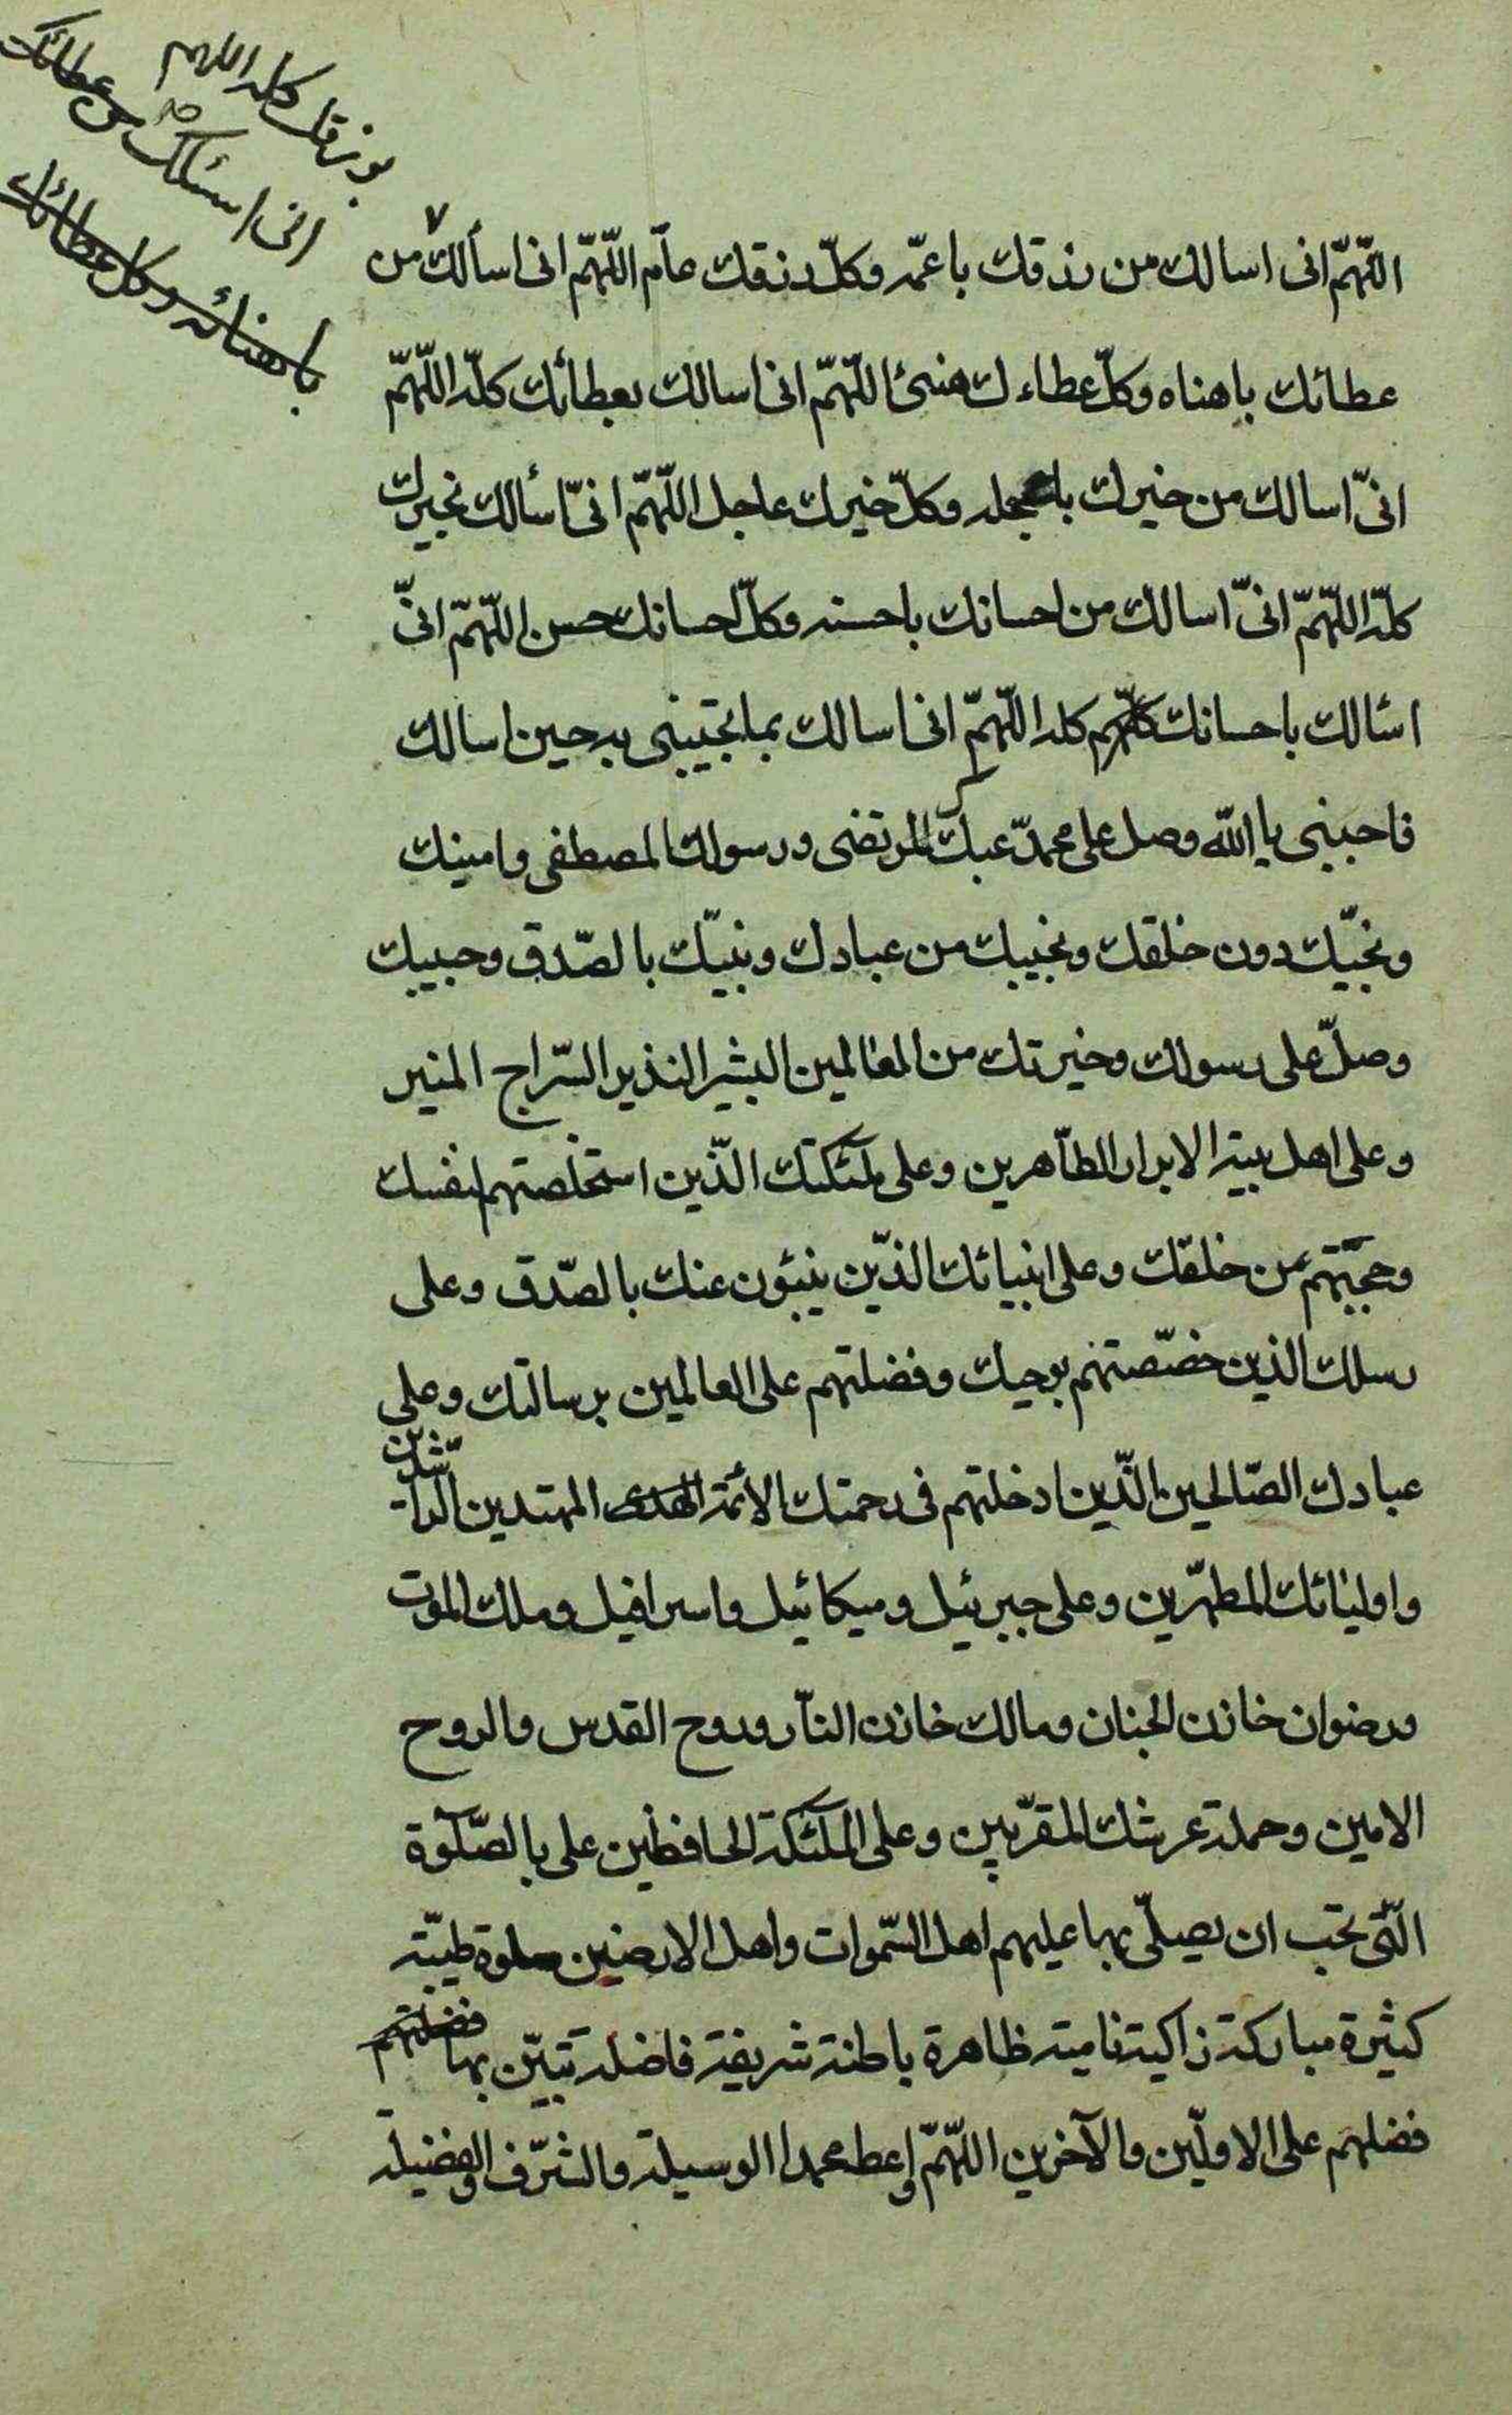 برزقك كله اللهم
انى اسئلك من عطائك
باهنائه وكل عطائك
اللّهمّ انى اسالك من رزقك باعمّه وكلّ رزقك عآم اللّهمّ انى اسألك من
عطائك باهناه وكلّ عطاءك هنىئ اللّهمّ انى اسالك بعطائك كلّه اللّهمّ
انىّ اسالك من خيرك باعجله وكلّ خيرك عاجل اللّهمّ انىّ اسألك بخيرك
كلّه اللّهمّ انىّ اسالك من احسانك باحسنه وكلّ احسانك حسن اللّهمّ انىّ
اسئالك باحسانك كله اللّهمّ انى اسالك بما تجيبنى به حين اسالك
فاجبنى يا الله وصل على محمدّ عبدك المرتضى ورسولك المصطفى وامينك
ونجيّك دون خلقك ونجيبك من عبادك ونبيّك بالصّدق وحبيبك
وصلّ على رسولك وخيرتك من العالمين البشير النذير السّراج المنير
وعلى اهل بيته الابرار الطآهرين وعلى ملئكتك الذّين استخلصتهم لنفسك
وحجبتهم عن خلقك وعلى انبيائك الذّين ينبئون عنك بالصّدق وعلى
رسلك الذين خصّصتهم بوحيك وفضلتهم على العالمين برسالتك وعلى
عبادك الصّالحين الذّين ادخلتهم فى رحمتك الأئمّة الهدى المهتدين الرآشدين
واوليائك المطهّرين وعلى جبرئيل وميكائيل واسرافيل وملك الموت
ورضوان خازن الجنان ومالك خازن النآر وروح القدس والروح
الامين وحملة عرشك المقرّبين وعلى الملئكة الحافظين على بالصّلوة
الّتى تحب ان يصلّى بها عليهم اهل السّموات واهل الارضين صلوة طيّبة
كثيرة مباركة زاكية نامية ظاهرة باطنة شريفة فاضلة تبيّن بها فضلتهم
فضلهم على الاوليّن والآخرين اللّهمّ واعط محمدا الوسيلة والشّرف والفضيلة